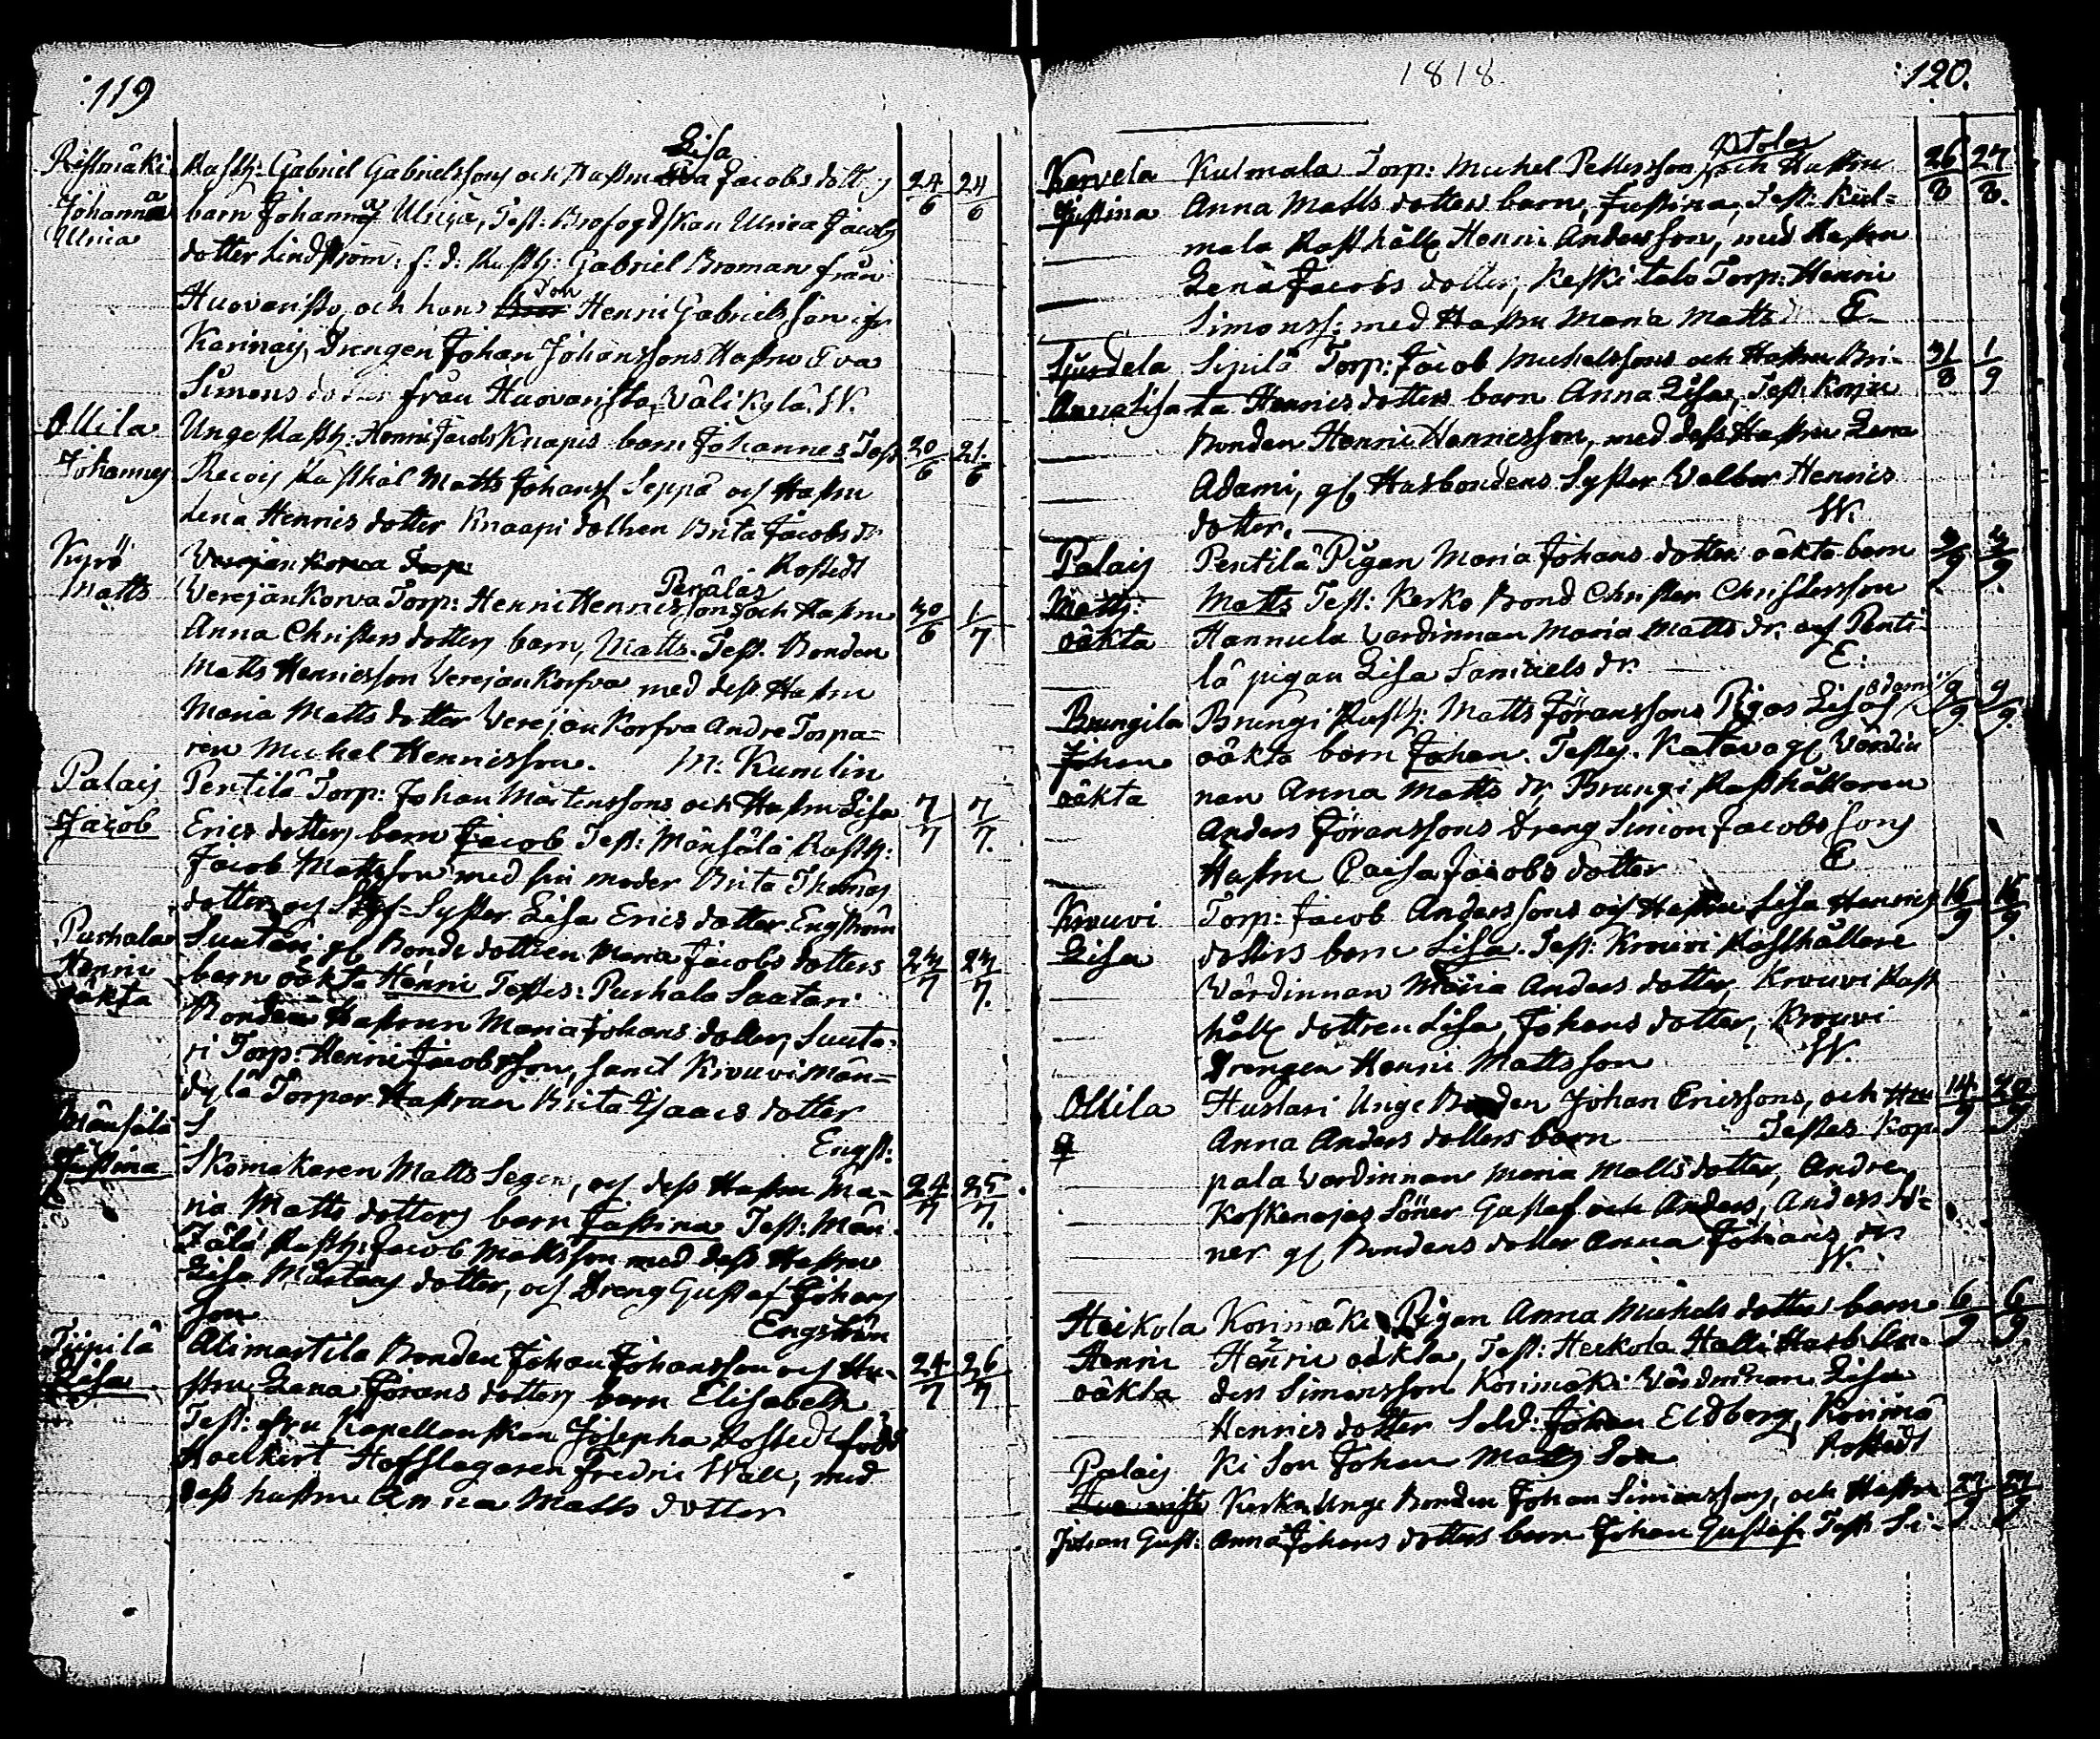 119
Ristmäki Rusth: Gabriel Gabrielssons och Hustrus Lisa Jacobs dotters 24/6 24/6
Johanna barn Johanna Ulrica, Test: Ulrica Jacobs
Ulrica dotter Lindström. f. d. Rusth: Gabriel Broman från
Huovaristo, och hans Son Henric Gabrielsson ifr
Karinais, Drengen Johan Johanssons Hustru Eva
Simons dotter från Huovaristo, Välikylä. W.
Ollila Unge Rusth: Henric Jacobs Knapis barn Johannes Test 20/6 21/6
Johannes Rusthål Matts Johans Seppä och Hustru
Lena Henrics dotter Knaapi dottren Brita Jacobs dr
Kyrö Verejänkorva Torp: Rostedt
Matts Verejänkorva Torp: Henric Henricssons Perälas och Hustru 30/6 1/7
Anna Christers dotters barn, Matts. Test. Bonden
Matts Henricsson Verejänkorfva med dess Hustru
Maria Matts dotter Verejänkorfva Andre Torpa=
ren Michel Henricsson. M: Kumlin
Palais Pentilä Torp: Johan Mårtenssons och Hustru Lisa 7/7 7/7.
Jacob Erics dotters barn Jacob Test: Mänsälä Rusth:
Jacob Mattsson med sin moder Brita Thomas
dotter, och Syster Lisa Erics dotter. Engström
Purhala Suutari gl Bonde dottren Maria Jacobs dotters 24/7 24/7.
Henric barn oäkta Henric Testes: Purhala Suutari
oäkta Bonden Hustrun Maria Johans dotter, Suuta-
ri Torp: Henric Jacobsson, samt Krouvi Män=
dylä Torpar Hustrun Brita Isaacs dotter
Mänsälä S Engst:
Justina Skomakaren Matts Segen, och dess Hustru Ma- 24/7 25/7.
ria Matts dotters barn Justina Test: Män-
sälä Rusth: Jacob Mattsson med dess Hustru
Lisa Mårtens dotter, och Dreng Gustaf Johans
son Engström
Tiipilä Alimartila Bonden Johan Johansson och Hu- 24/7 26/7
Lisa stru Lena Jörans dotters barn Elisabeth
Test: Fru Kapellanskan Josepha Rostedt född
Hoelkert Hofslagaren Fredric Wall, med
dess hustru Anna Matts dotter
1818
120.
Kervela Kulmala Torp: Michel Pettersson och Hustru 26/8 27/8.
Justina Anna Matts dotters barn, Justina, Test: Kul-
mala Rusthåll Henric Andersson, med Hustru
Lena Jacobs dotter, Keskitalo Torp: Henric
Simonss: med Hustru Maria Matts d E.
Sjurdela Sipilä Torp: Jacob Michelssons och Hustru Bri- 31/8 1/9
Anna Lisa ta Henrics dotters barn Anna Lisa, Test:
Bonden Henric Henricsson, med dess Hustru Lena
Adami, gl Husbondens Syster Valbor Henrics
dotter. W.
Palais Pentilä Pigan Maria Johans dotter oäkta barn
Matts: Matts Test: Kerko Bond Christer Christersson
oäkta Hannula Värdinnan Maria Matts dr. och Penti-
lä pigan Lisa Samuels dr. E.
Brungila Brungi Rusth: Matts Jöranssons Pigas Lisas Adami 9/9. 9/9.
Johan oäkta barn Johan. Testes. Katava gl Värdin
oäkta nan Anna Matts dr, Brungi Rusthållaren
Anders Jöranssons Dreng Simon Jacobs sons
Hustru Caisa Jacobs dotter E
Krouvi Torp: Jacob Anderssons och Hustru Lisa Henrics 16/9 16/9.
Lisa dotters barn Lisa. Test: Krouvi Rusthållare
Värdinnan Maria Anders dotter, Krouvi Rust
håll: dottren Lisa Johans dotter, Krouvi
Drengen Henric Mattsson W.
Ollila Huslari Unge Bonden Johan Ericssons, och Hu 14/9 20/9
Anna Anders dotters barn Testes Kop-
pala Värdinnan Maria Matts dotter, Andre
Koskenojas Söner Gustaf och Anders, Anders Sö-
ner gl Bondens dotter Anna Johans dr
W.
Heikola Korimäki Pigan Anna Michels dotters barn 6/9 6/9.
Henric Henric oäkta, Test: Heikola Halli Husb: An-
oäkta ders Simonsson Korimäki Värdinnan Lisa
Henrics dotter Sold: Johan Eldborg, Korimä
Palais ki Son Johan Matts Son Rostedt
Kerko Unge Bonden Johan Simonssons, och Hustru 27/9 27/9
Johan Gust: Anna Johans dotters barn Johan Gustaf Test Si-